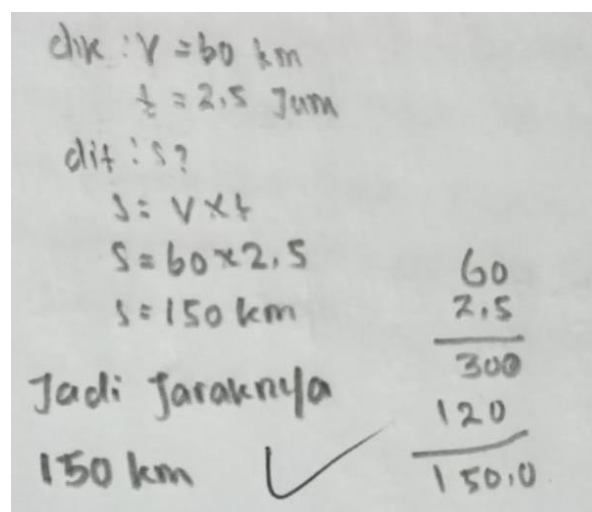 dik : V = 60 km
t = 2,5 Jam
dit : s?
s = V x t
S = 60 x 2,5
s = 150 km
Jadi Jaraknya
150 km
60
2,5
300
120
150,0